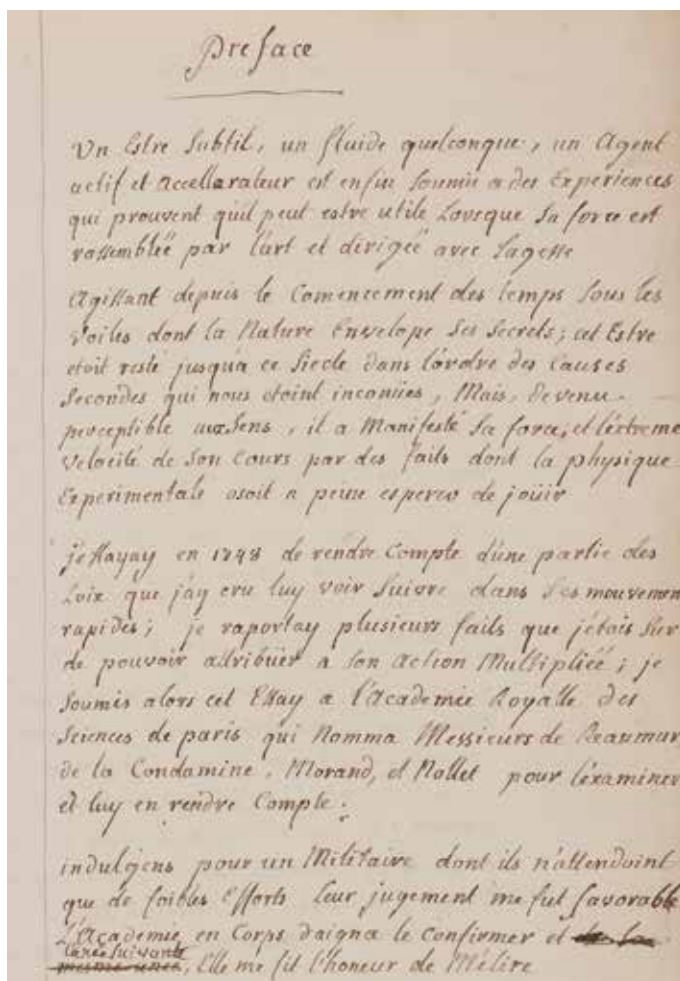 Preface
Un Estre Subtil, un fluide quelconque, un Agent
actif et accellarateur est enfin soumis a des Experiences
qui prouvent quil peut estre utile Lorsque Sa force est
rassembleë par l'art et dirigeë avec Sagesse
Agissant depuis le Comencement des temps Sous les
Voiles dont la Nature Envelope Ses Secrets; cet Estre
etoit resté jusqu'a ce Siecle dans l'ordre des Causes
Secondes qui nous etoint inconnües, Mais, devenu
perceptible aux Sens, il a Manifesté Sa force, et l'extreme
Velocité de Son Cours par des faits dont la physique
Experimentale osoit a peine esperer de joüir
j'essayay en 1748 de rendre Compte d'une partie des
Loix que j'ay cru luy voir Suivre dans Ses mouvemen
rapides; je raportay plusieurs faits que j'etois Sur
de pouvoir attribüer a Son Action Multipliéé; je
Soumis alors cet Essay a l'Academie Royalle des
Sciences de paris qui Nomma Messieurs de Reaumur,
de la Condamine, Morand, et Nollet pour l'examiner
et luy en rendre Compte.
indulgens pour un Militaire dont ils n'attendoint
que de foibles Efforts Leur jugement me fut favorable
L'Academie en Corps daigna le confirmer et
L'anée Suivante
mesme année, Elle me fit l'honeur de M'élire